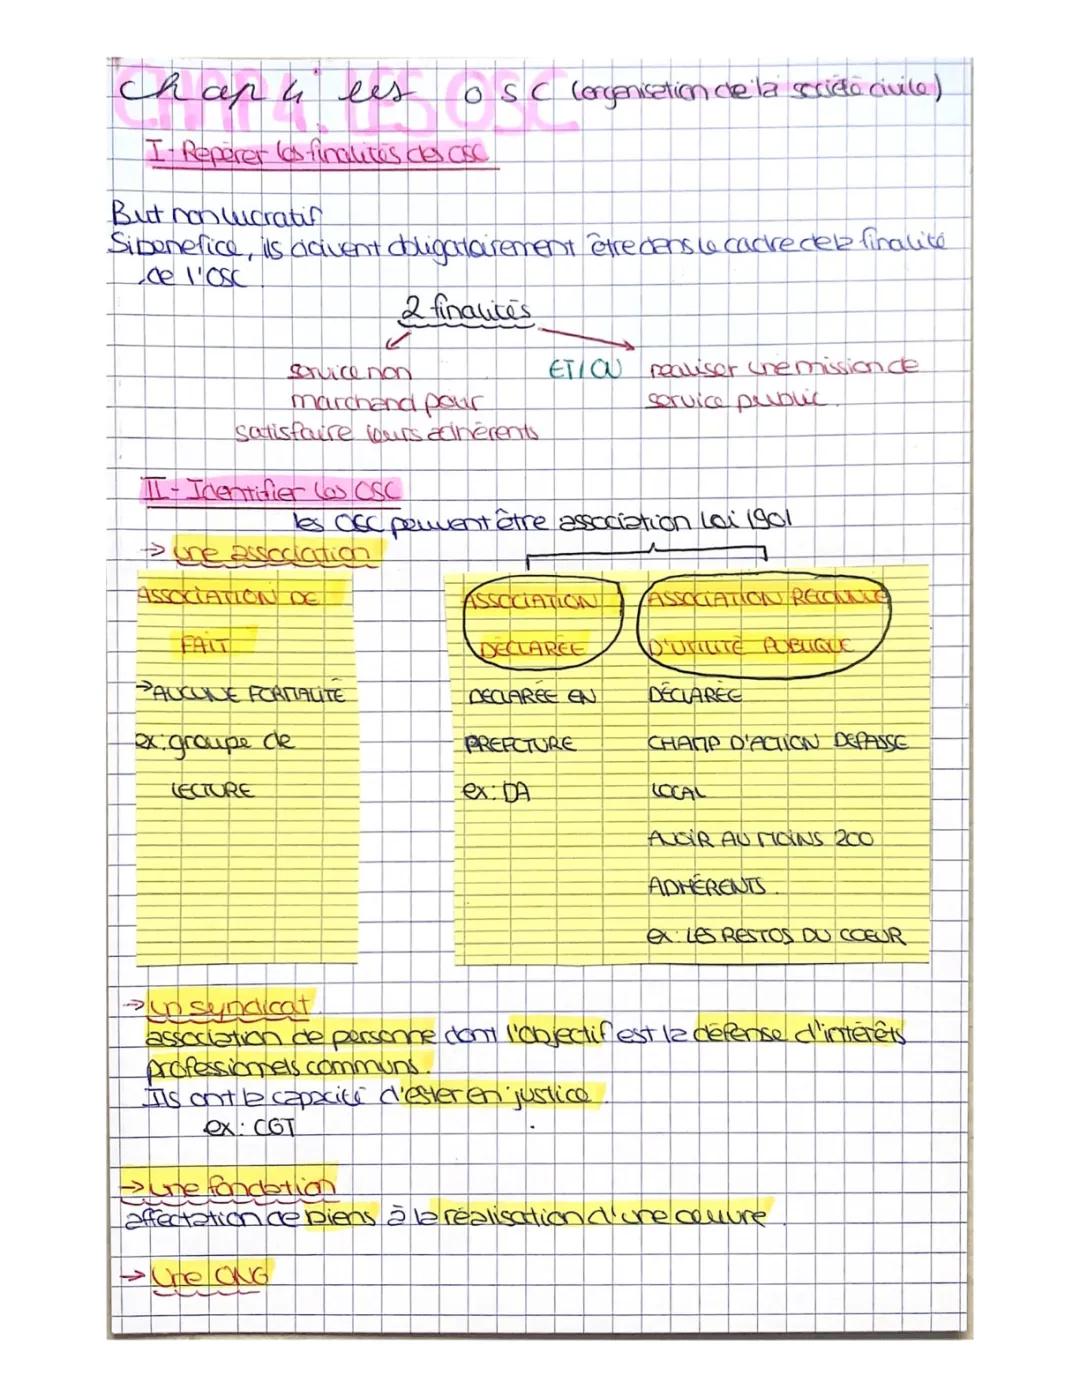 Chap 4 les OSC (organisation de la société civile)
I- Repérer les finalités des OSC
But non lucratif
Si bénéfice, ils doivent obligatoirement être dans le cadre de la finalité
de l'OSC
2 finalités
service non
marchand pour
satisfaire leurs adhérents
ET/OU
réaliser une mission de
service public.
II- Identifier les OSC
les OSC peuvent être association Loi 1901
→ une association
ASSOCIATION DE
FAIT
→AUCUNE FORMALITÉ
ex: groupe de
LECTURE
ASSOCIATION
DÉCLARÉE
DECLARÉE EN
PREFCTURE
ex: DA
ASSOCIATION RECONNUE
D'UTILITÉ PUBLIQUE
DÉCLARÉE
CHAMP D'ACTION DEPASSE
LOCAL
AVOIR AU MOINS 200
ADHÉRENTS.
ex: LES RESTOS DU COEUR
→ un syndicat.
association de personne dont l'objectif est la défense d'intérêts
professionnels communs.
Ils ont la capacité d'ester en justice.
ex: CGT
→ une fondation
affectation de biens à la réalisation d'une oeuvre.
→ Une ONG